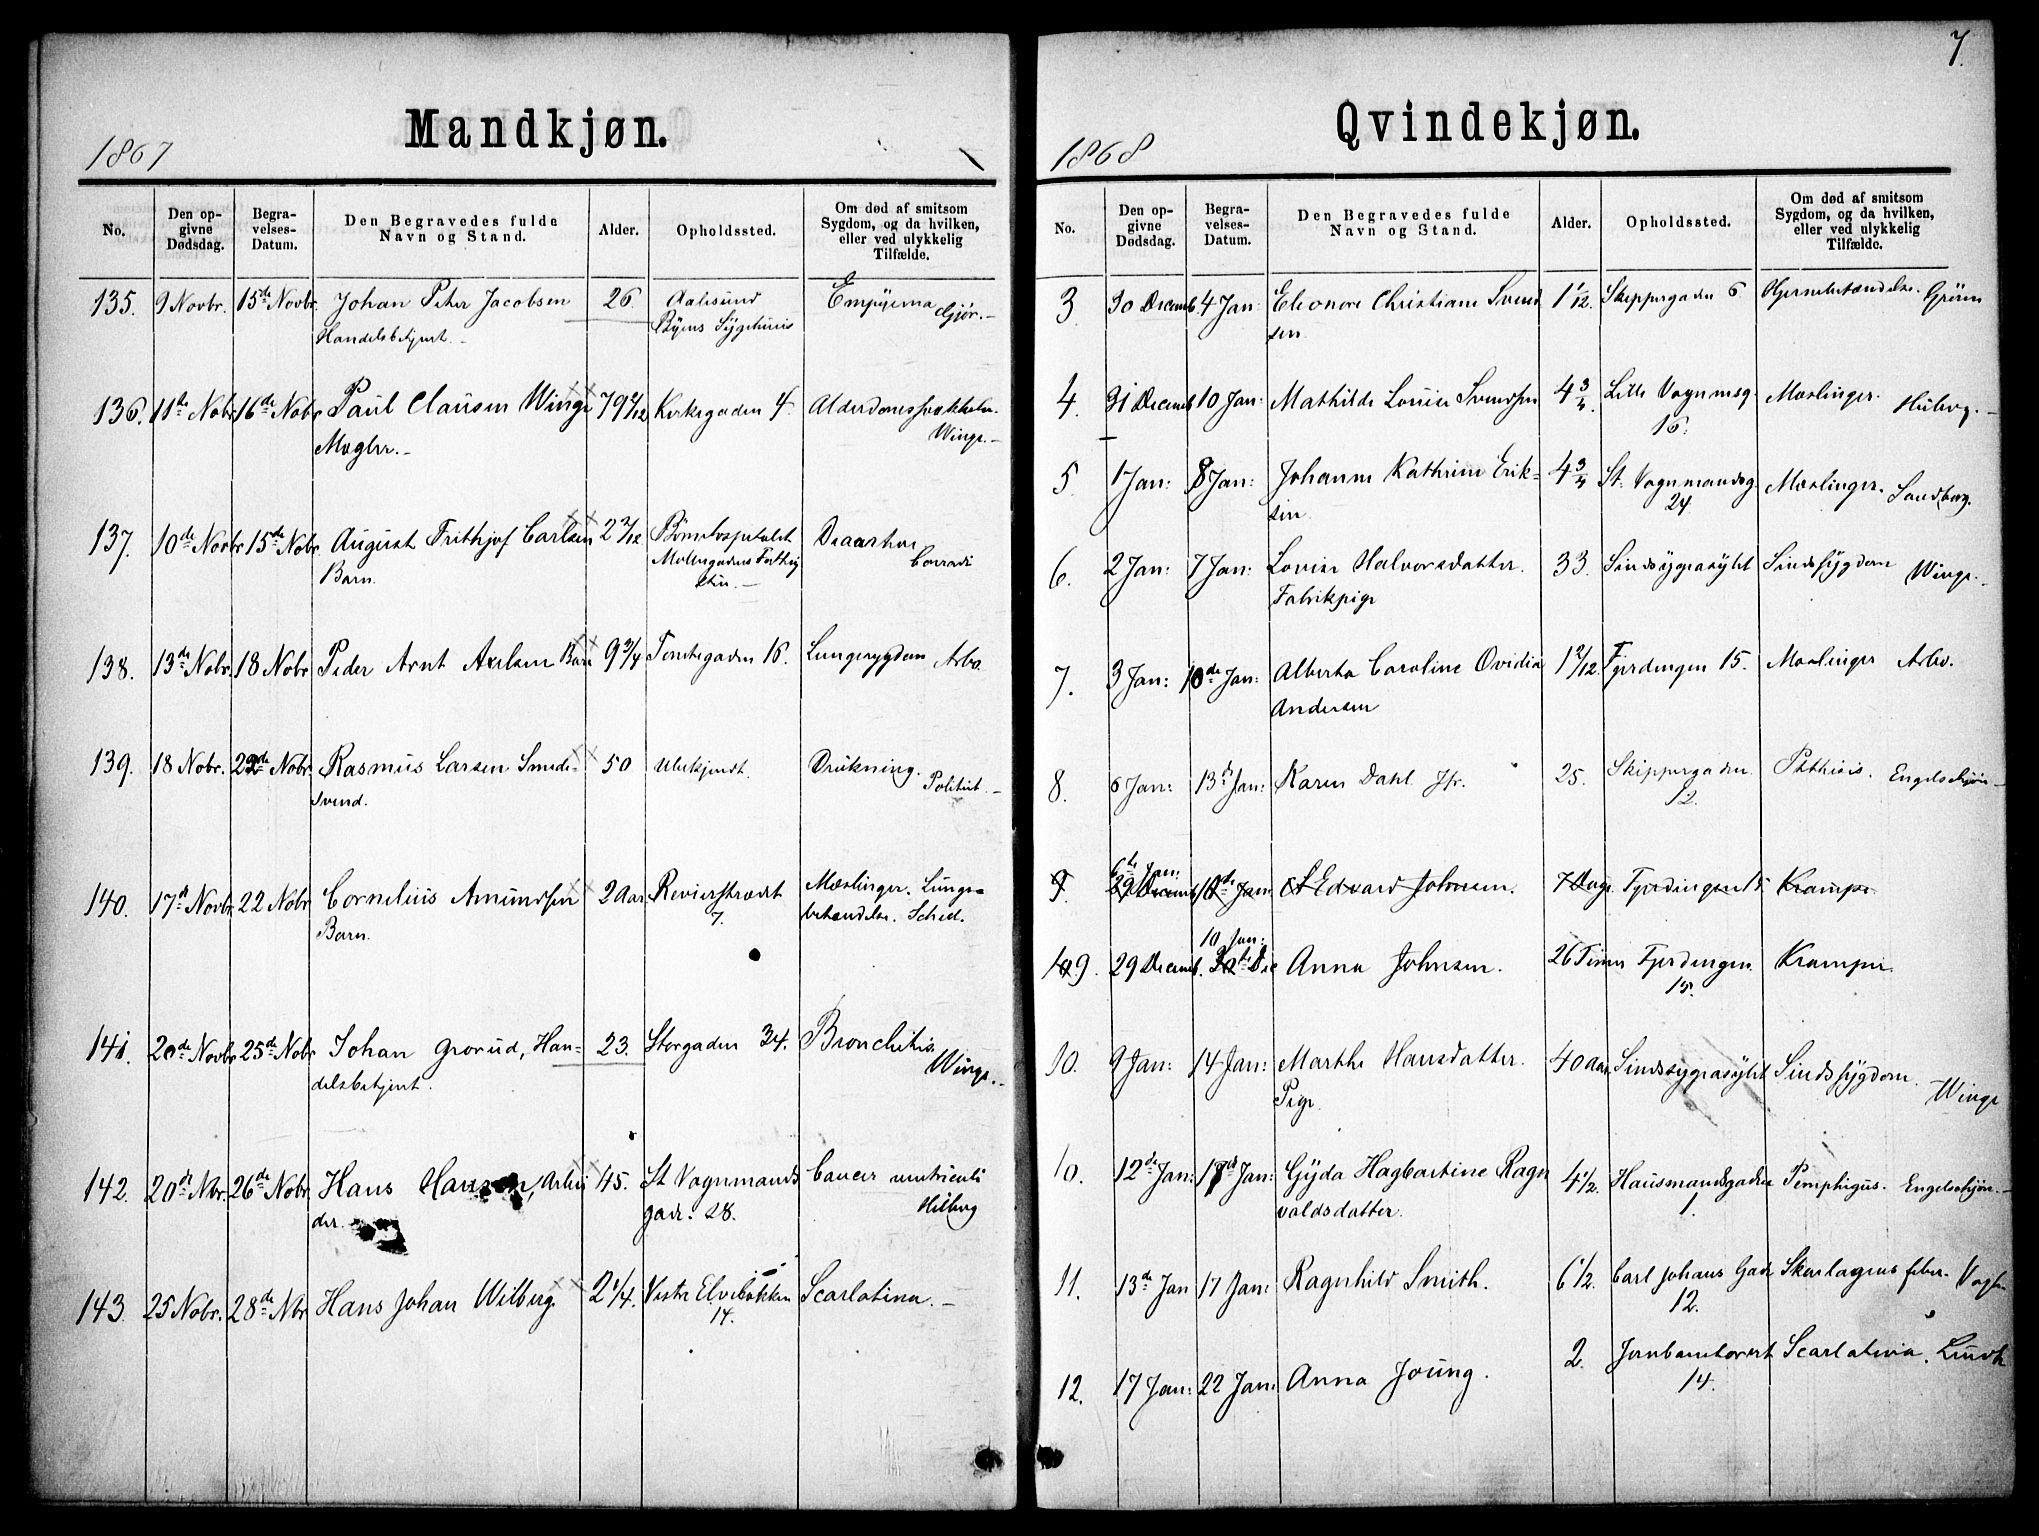 7.
Mandkjøn.
1867
No.
Den op-
givne
Dødsdag.
Begra-
velses-
Datum.
Den Begravedes fulde
Navn og Stand.
Alder.
Opholdssted.
Om død af smitsom
Sygdom, og da hvilken,
eller ved ulykkelig
Tilfælde.
135. 9 Novbr. 15de Novbr. Johan Peter Jacobsen 26. Aalesund Empyema
Handelsbetjent. Byens Sygehuus Gjør.
136. 11te Nobr 16de Nobr Paul Clausen Winge 79 2/12 Kirkegaden 4
Mægler. Winge.
137. 10de Novbr 15de Nobr. August Frithjof Carlsen 2 2/12 Børnehospitalet Diaarhoe
Barn. Conradi
138. 13de Nobr. 18 Nobr Peder Arnt Axelsen Barn 9 3/4 Torvtegaden 16. Lungesygdom Arbo
139. 18 Nobr. 22de Nobr. Rasmus Larsen Smede- 50 Ubekjendt. Drukning.
svend. Politiet.
140. 17de Novbr. 22 Nobr Cornelius Amundsen 2 Aar Revierstrædet Mæslinger. Lunge-
Barn. 7. betændelse. Scheel.
141. 20de Novbr 25de Nobr Johan Grorud, Han- 23. Storgaden 34. Bronchitis
delsbetjent. Winge.
142. 20de Nbr. 26de Nobr. Hans Hansen, Arbei 45. St Vognmands Cancer ventriculi
der. gade. 28. Hilberg
143. 25 Nobr. 28de Nbr Hans Johan Wilberg 2 1/4. Vestre Elvebakken Scarlatina.
14.
Qvindekjøn.
1868
No.
Den op-
givne
Dødsdag.
Begra-
velses-
Datum.
Den Begravedes fulde
Navn og Stand.
Alder.
Opholdssted.
Om død af smitsom
Sygdom, og da hvilken,
eller ved ulykkelig
Tilfælde.
3 30 Decemb. 4 Jan: Eleonore Christiane Svend 1 1/12. Skippergaden 6 Hjernebetændelse.
sen
4. 31 Decemb 10 Jan: Mathilde Louise Svendsen 4 3/4 Lille Vognmsg. Mæslinger.
16.
5 1 Jan: 8 Jan: Johanne Kathrine Erik- 4 3/4 St. Vognmandsg. Mæslinger. Sandberg.
sen 24
6. 2 Jan: 7 Jan: Lovise Halvorsdatter. 33. Sindsygeasylet Sindssygdom Winge.
Fabrikpige
7. 3 Jan: 10de Jan: Alberta Caroline Ovidia 1 2/12. Fjerdingen 15. Mæslinger Arbo.
Andersen
8. 6 Jan: 13de Jan: Karen Dahl Jfr. 25. Skippergaden Phthisis. Engelschjøn
12.
6te Jan:
9. 29 Decemb 10de Jan. Edvard Johnsen. 7 Dage Fjerdingen 15 Krampe
10 Jan:
109. 29 Decemb. 30te Dec Anna Johnsen. 26 Timer Fjerdingen Krampe
15.
10. 9 Jan: 14 Jan: Marthe Hansdatter. 40 Aar Sindssygeasylet Sindssygdom.
Pige. Winge
10. 12de Jan: 17de Jan: Gyda Hagbartine Ragn 4 1/2. Hausmandsgaden Pemphigus. Engelschjøn.
valdsdatter. 1.
11. 13de Jan 17 Jan: Ragnhild Smith. 6 1/2. Carl Johans Gade Skarlagensfeber.
12.
12. 17 Jan: 22 Jan: Anna Joung. 2. Jernbanetorvet Scarlatina.
14.